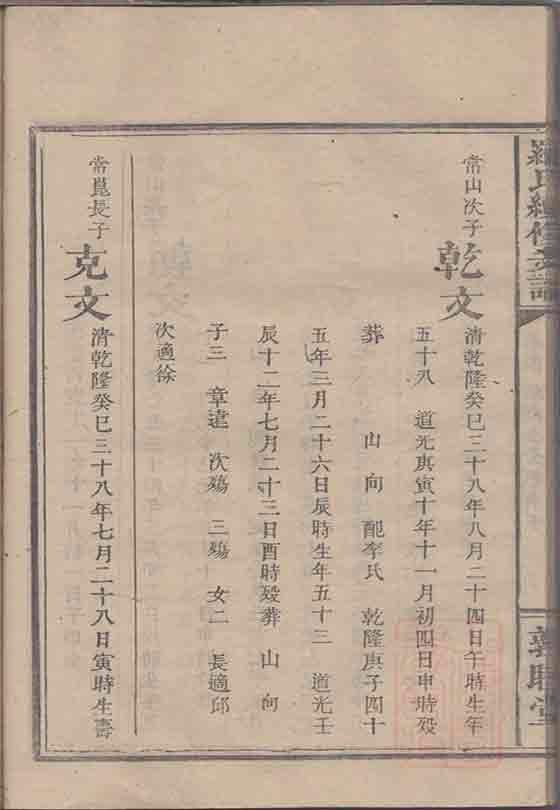 羅氏續修支譜
敦睦堂
常山次子
乾文
清乾隆癸巳三十八年八月二十四日午時生年
五十八 道光庚寅十年十一月初四日申時殁
葬 山 向 配李氏 乾隆庚子四十
五年三月二十六日辰時生年五十三 道光壬
辰十二年七月二十三日酉時殁葬 山 向
子三 章達 次殤 三殤 女二 長適邱
次適徐
常崑長子
克文
清乾隆癸巳三十八年七月二十八日寅時生壽